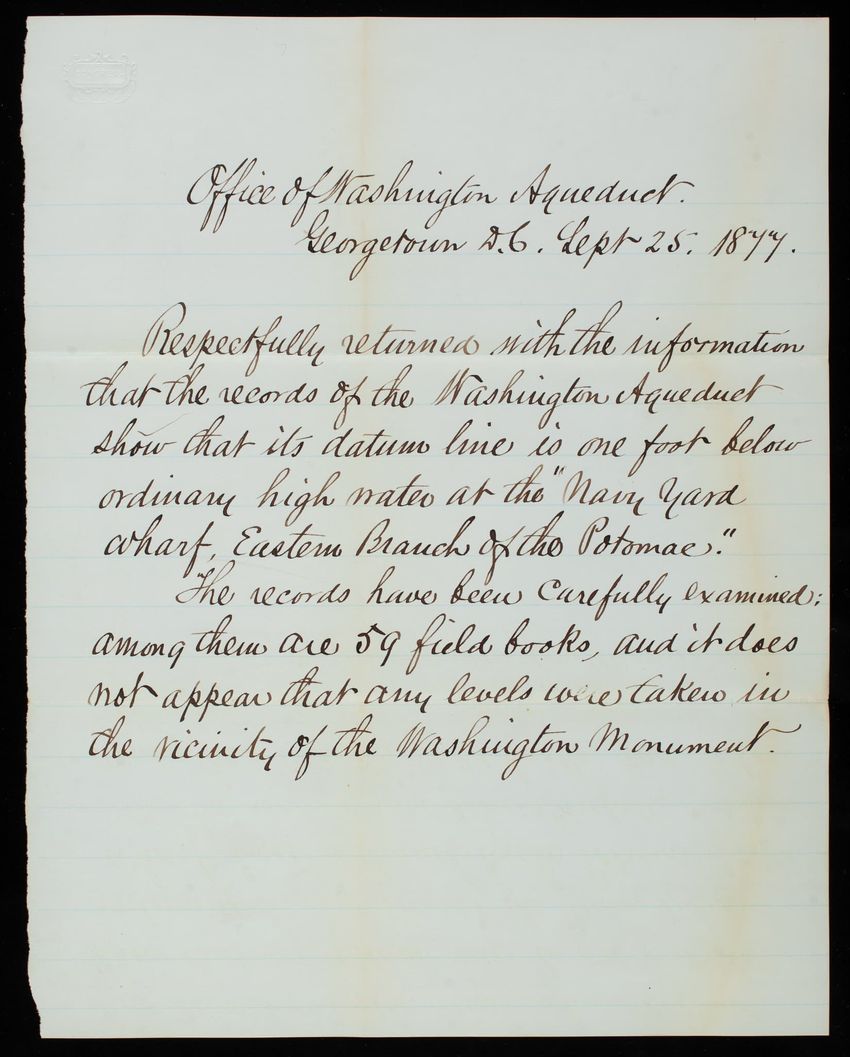 Office of Washington Aqueduct.
Georgetown D.C. Sept 25. 1877.
Respectfully returned with the information
that the records of the Washington Aqueduct
show that its datum line is one foot below
ordinary high water at the "Navy Yard
wharf, Eastern Branch of the Potomac."
The records have been carefully examined;
among them are 59 field books, and it does
not appear that any levels were taken in
the vicinity of the Washington Monument.